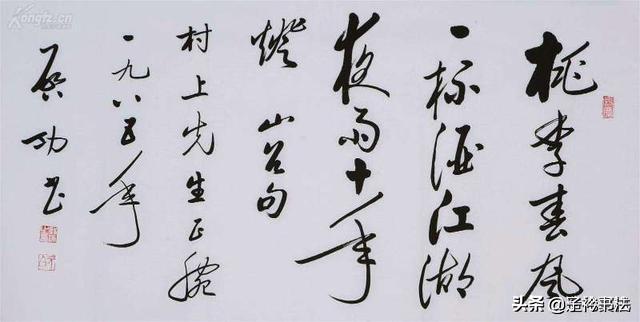 桃李春风
一杯酒江湖
夜雨十年
灯 山谷句
村上先生正腕
一九八五年
启功书
Kongfz.cn
头条@子衿书法